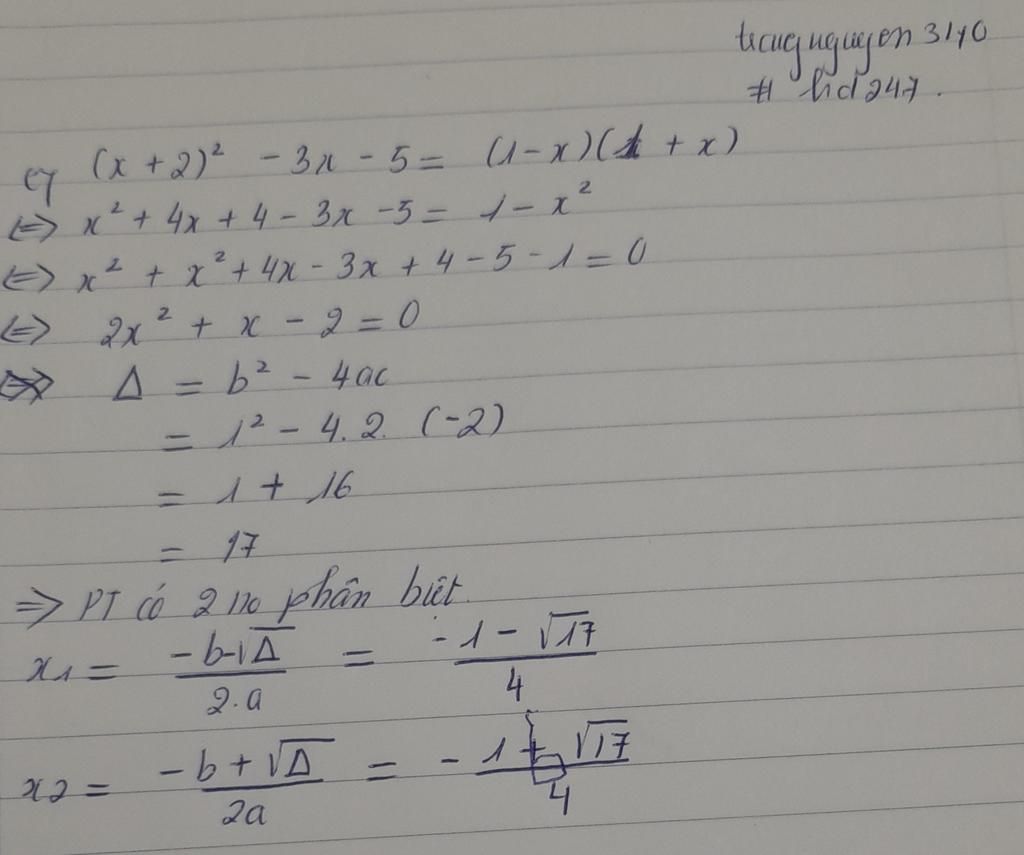 trangnguyen31y0
# hd247.
c, (x + 2)² - 3x - 5 = (1 - x)(1 + x)
<=> x² + 4x + 4 - 3x - 5 = 1 - x²
<=> x² + x² + 4x - 3x + 4 - 5 - 1 = 0
<=> 2x² + x - 2 = 0
Δ = b² - 4ac
= 1² - 4.2.(-2)
= 1 + 16
= 17
=> PT có 2 no phân biệt.
x1 = (-b-√Δ)/(2.a) = (-1-√17)/4
x2 = (-b+√Δ)/(2a) = (-1+√17)/4